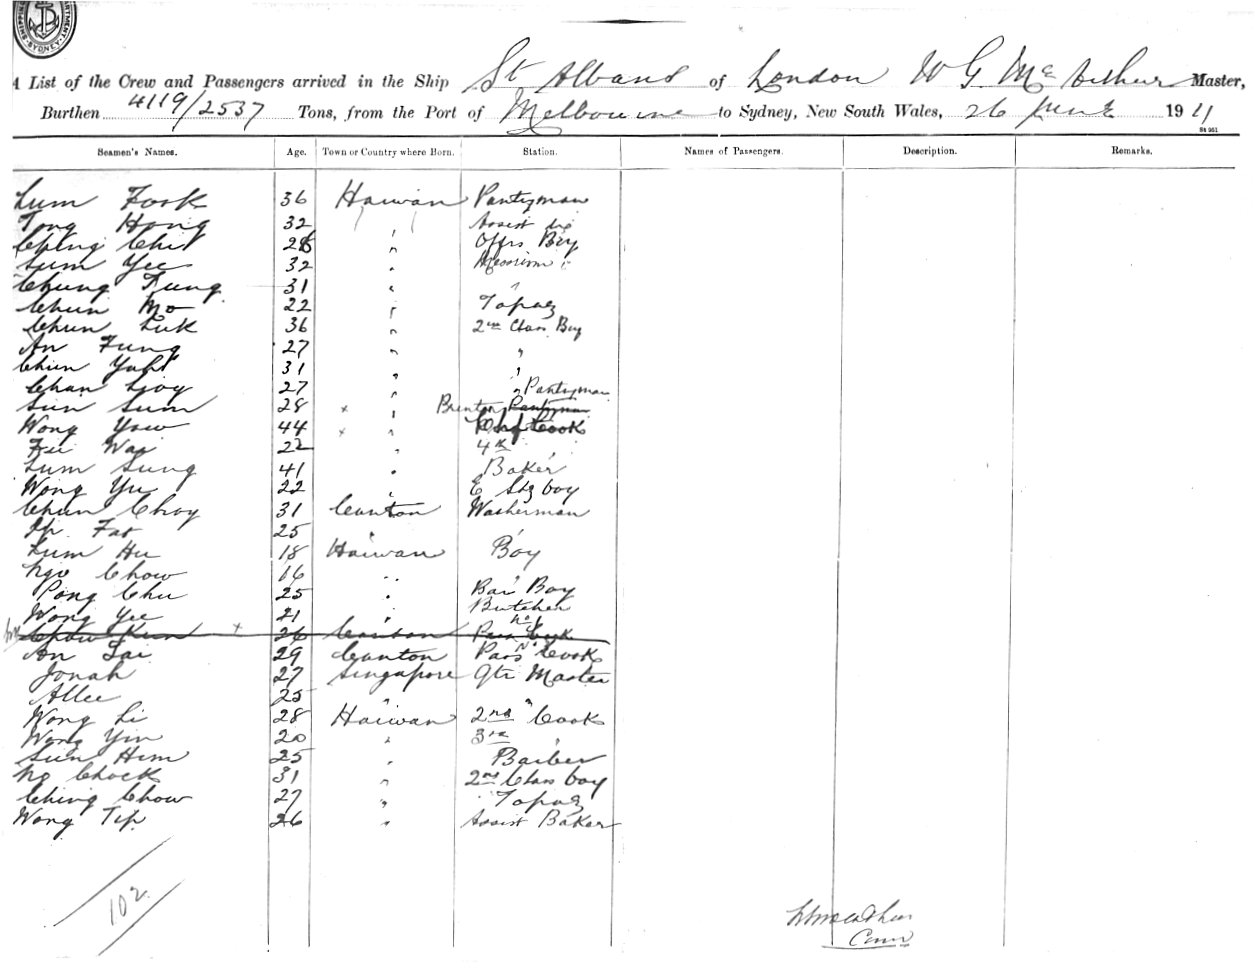 DEPARTMENT. SYDNEY. SHIPPING
A List of the Crew and Passengers arrived in the Ship St Albans of London W G McArthur Master,
Burthen 4119/2537 Tons, from the Port of Melbourne to Sydney, New South Wales, 26 June 1911
S4 951
Seamen's Names. Age. Town or Country where Born. Station. Names of Passengers. Description. Remarks.
Lum Fook 36 Haiwan Pantryman
Tong Hong 32 " Assist do
Ching Chit 28 " Offrs Boy
Lum Yee 32 " Messroom "
Chung Kung 31 " "
Chun Mo 22 " Topaz
Chun Luk 36 " 2nd Class Boy
An Fung 27 " "
Chun Yuht 31 " "
Chan Goy 27 " " Pantryman
Sun Sum 28 x " Pantryman
Wong Yow 44 x " Chf Cook
Fu Wai 22 " 4th "
Lum Sung 41 " Baker
Wong Yu 22 " E Stg boy
Chun Choy 31 Canton Washerman
Ip Fat 25 " "
Lum Hu 18 Haiwan Boy
Ngo Chow 16 " "
Pong Chu 25 " Bar Boy
Wong Yee 21 " Butcher
Chow Kun x 26 Canton Pass Cook
An Lai 29 Canton Pass Cook
Jonah 27 Singapore Qtr Master
Allee 25 " "
Wong Li 28 Haiwan 2nd Cook
Wong Yin 20 " 3rd "
Sun Him 25 " Barber
Ng Chock 31 " 2nd Class boy
Ching Chow 27 " Topaz
Wong Tip 26 " Assist Baker
102